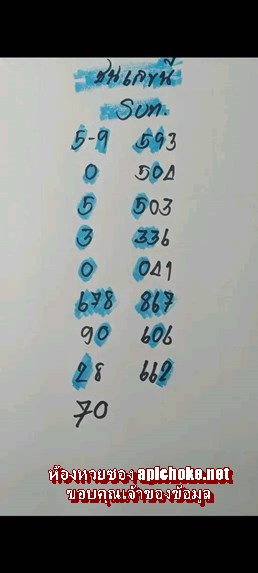 ชนเลขนี้
รบก.
5-9 593
0 504
5 503
3 336
0 041
678 867
90 606
28 662
70
ห้องหวยซอง apichoke.net
ขอบคุณเจ้าของข้อมูล